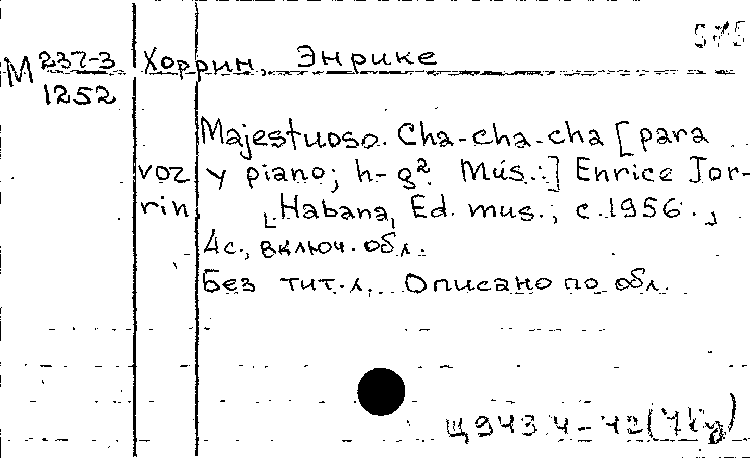 575
М 237-3 Хоррин, Энрике
1252
Majestuoso. Cha-cha-cha [para
voz y piano; h-g². Mús.:] Enrice Jor-
rin. [Habana, Ed. mus., c.1956.]
4с., включ. обл.
Без тит. л. Описано по обл.
Щ943 4-42(7Ку)